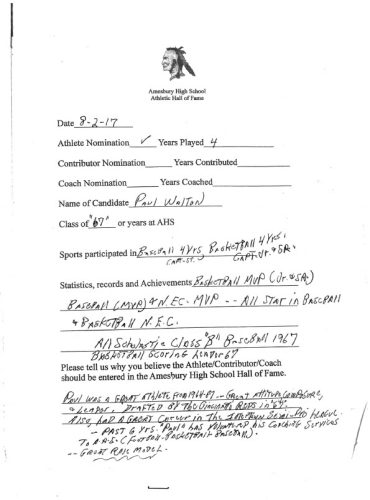 Amesbury High School
Athletic Hall of Fame
Date 8-2-17
Athlete Nomination ✓ Years Played 4
Contributor Nomination Years Contributed
Coach Nomination Years Coached
Name of Candidate Paul Walton
Class of "67" or years at AHS
Sports participated in Baseball 4 yrs. Basketball 4 yrs.
Capt-Sr. Capt Jr. & Sr.
Statistics, records and Achievements Basketball MVP (Jr & Sr)
Baseball (MVP) & N.E.C-MVP -- All Star in Baseball
& Basketball N.E.C.
All Scholastic Class "B" Baseball 1967
Basketball Scoring Leader 67
Please tell us why you believe the Athlete/Contributor/Coach
should be entered in the Amesbury High School Hall of Fame.
Paul was a great athlete from 1964-67 -- Great attitude,
& Leader. Drafted by the Cincinnati Reds in "67".
Also, had a great career in the Semi-Pro League.
- Past 6 yrs. "Paul" has volunteered his coaching services
To A.H.S. (Football-Basketball-Baseball).
-- Great Role Model.